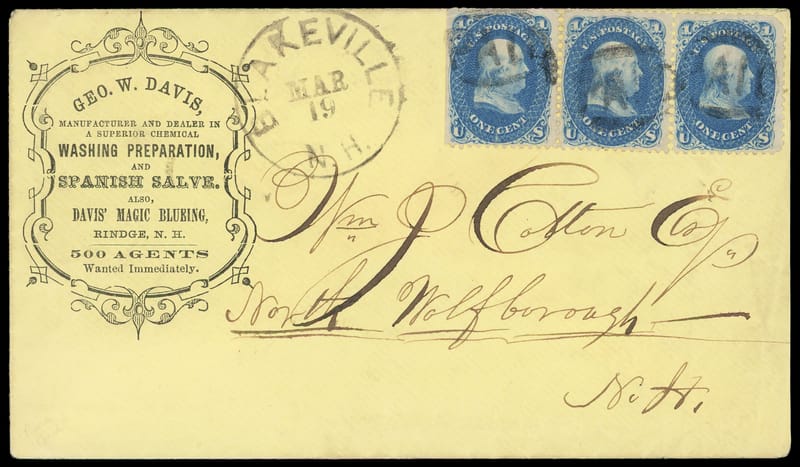 GEO. W. DAVIS,
MANUFACTURER AND DEALER IN
A SUPERIOR CHEMICAL
WASHING PREPARATION,
AND
SPANISH SALVE.
ALSO,
DAVIS' MAGIC BLUEING,
RINDGE, N. H.
500 AGENTS
Wanted Immediately.
BLAKEVILLE
MAR
19
N.H.
U.S. POSTAGE
ONE CENT
U S
U.S. POSTAGE
ONE CENT
U S
U.S. POSTAGE
ONE CENT
U S
Wm P Cotton Esq
North Wolfborough
N. H.